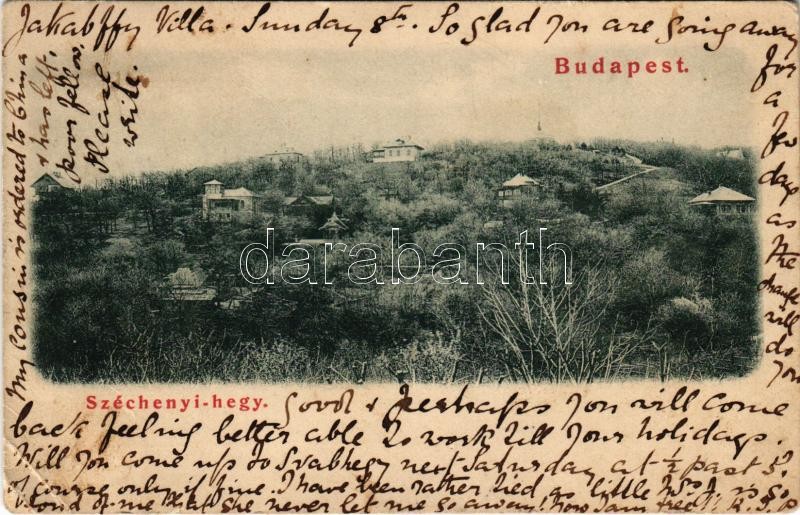 Jakabffy Villa. Sunday 8th. So glad you are going away
for
a
few
days
as
the
change
will
do
you
Budapest.
My cousin is ordered to China
& has left,
poor fellow.
Please
write.
darabanth
Széchenyi-hegy.
good & perhaps you will come
back feeling better able to work till your holidays.
Will you come up to Svabhegy next Saturday at ½ past 5?
of course only if fine. I have been rather tied as little is so
fond of me that she never let me go away! Now I am free!